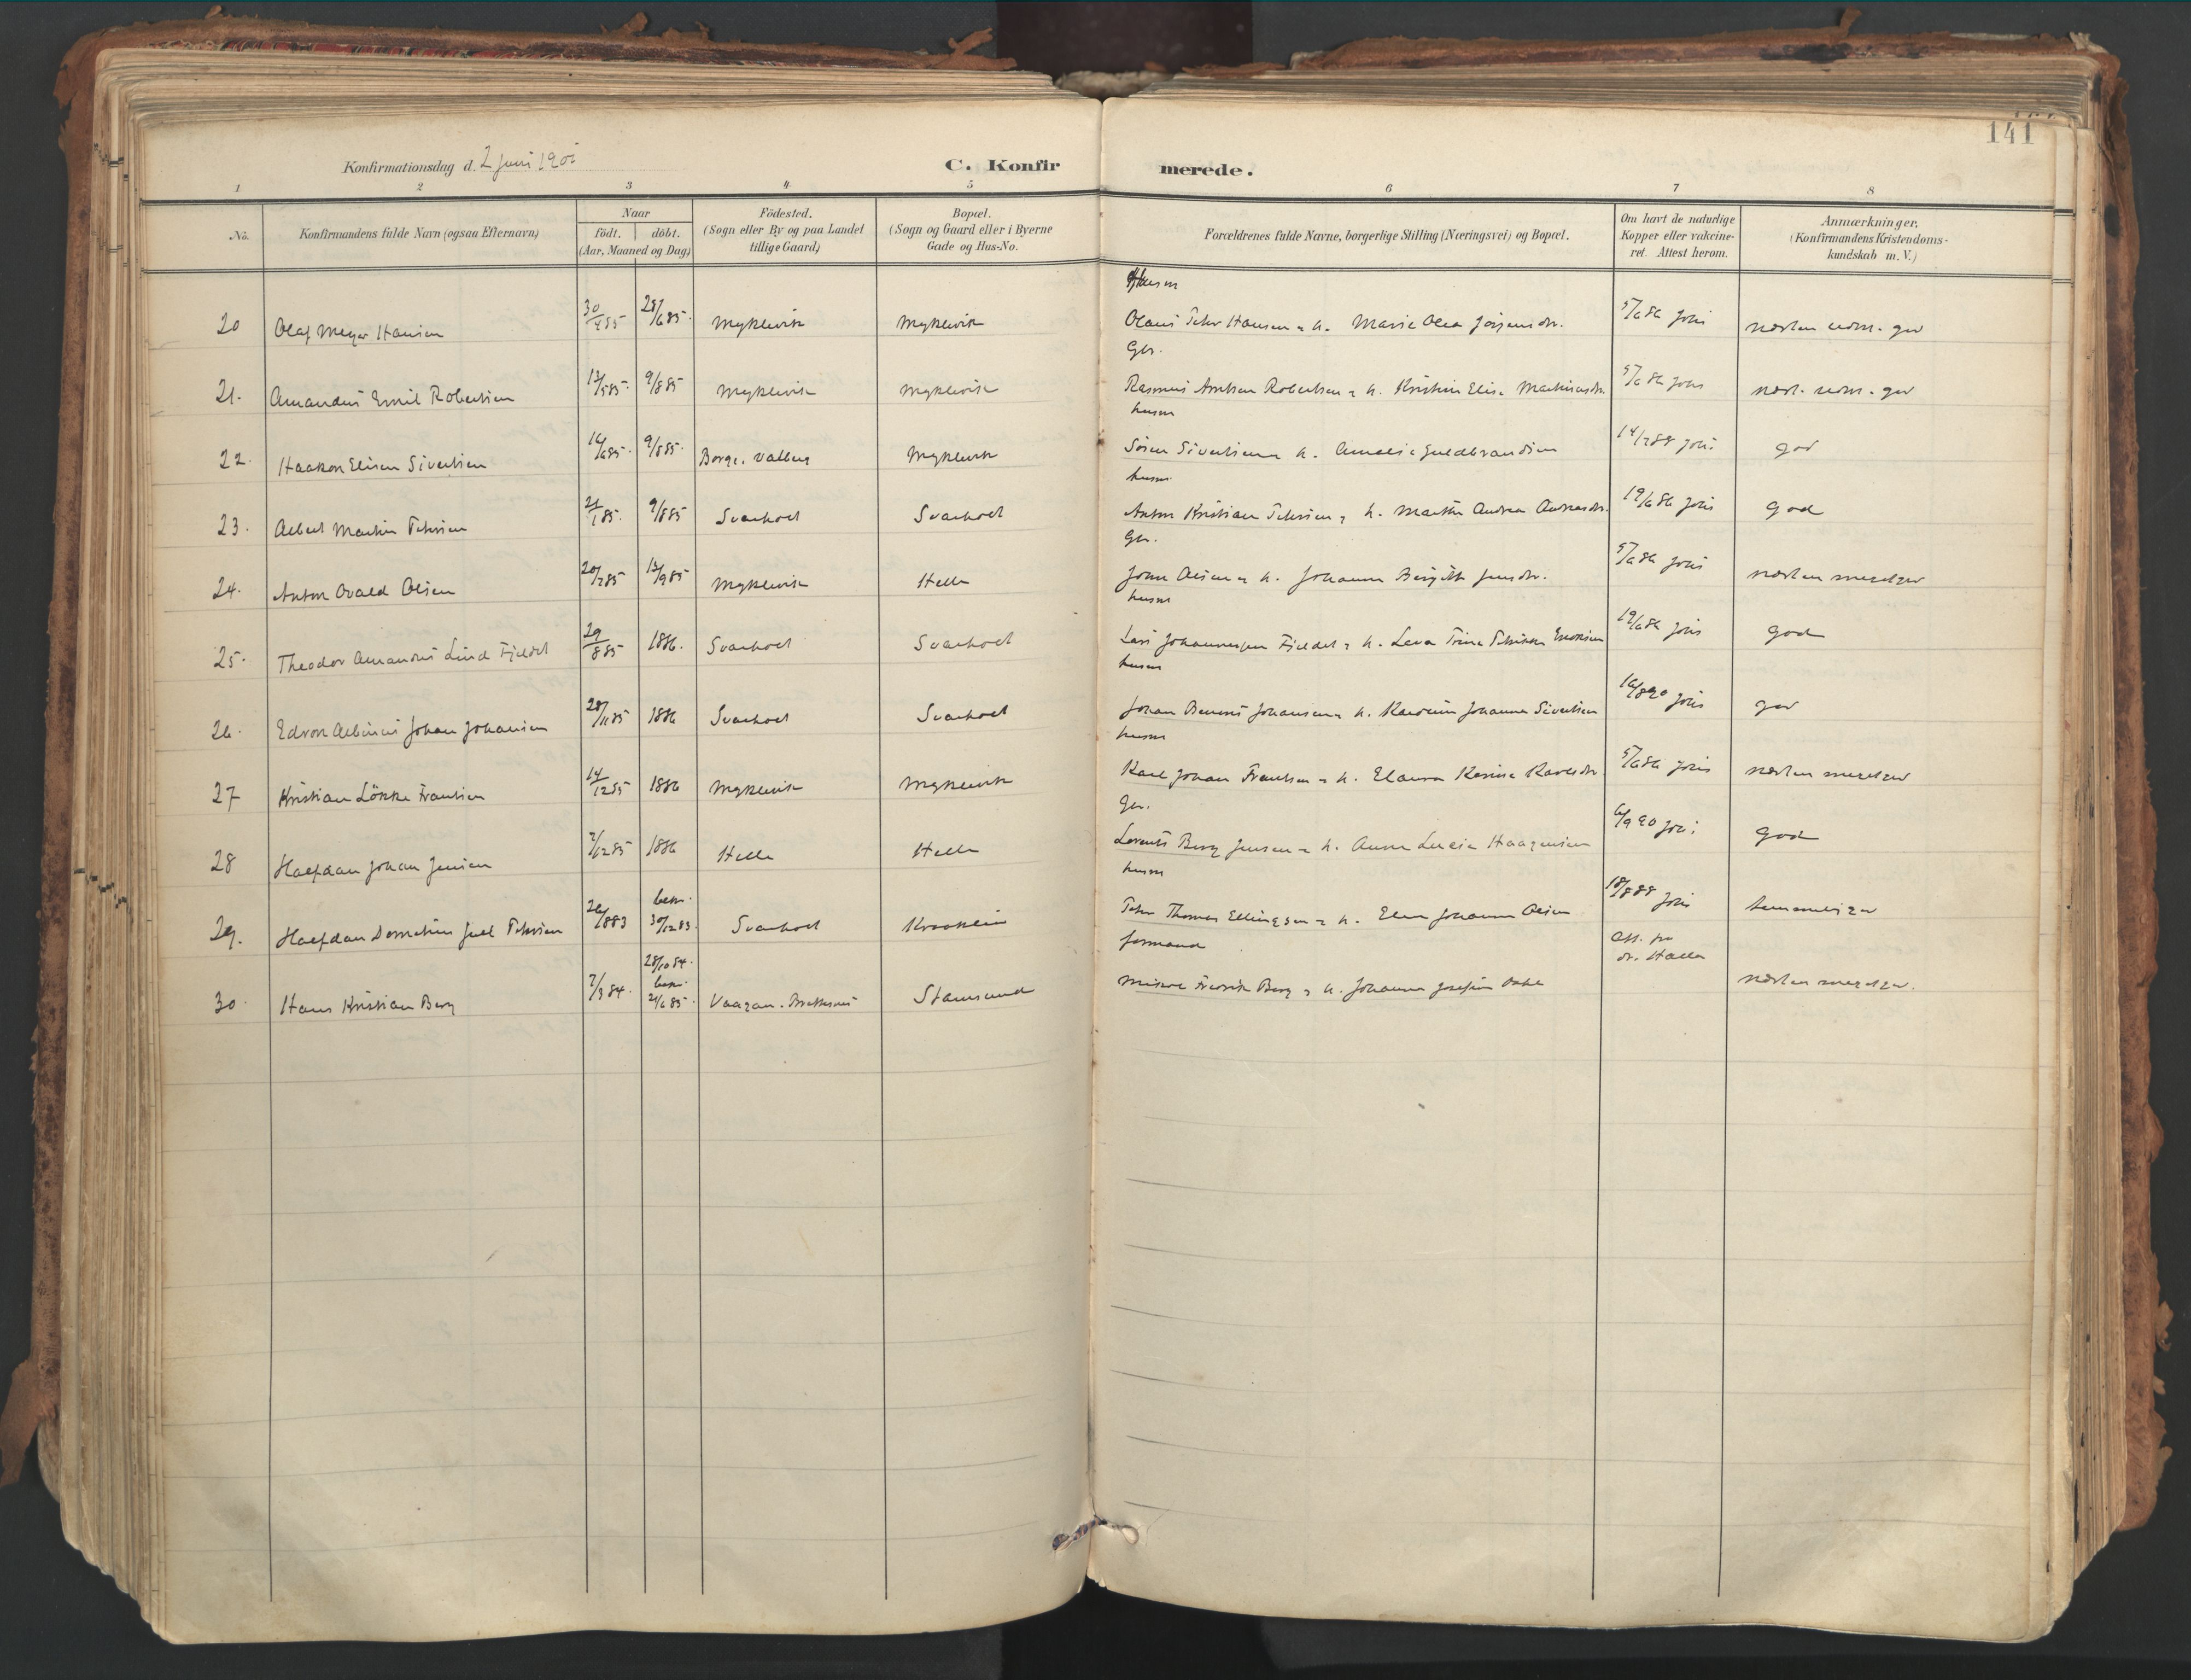 141
Konfirmationsdag d. 2 juni 1901
C. Konfir merede.
1 2 3 4 5 6 7 8
No.
Konfirmandens fulde Navn (ogsaa Efternavn)
Naar
födt. döbt.
(Aar, Maaned og Dag)
Födested.
(Sogn eller By og paa Landet
tillige Gaard)
Bopæl.
(Sogn og Gaard eller i Byerne
Gade og Hus-No.
Forældrenes fulde Navne, borgerlige Stilling (Næringsvei) og Bopæl.
Om havt de naturlige
Kopper eller vakcine-
ret. Attest herom.
Anmærkninger,
(Konfirmandens Kristendoms-
kundskab m. V.)
husm
20 Olaf Meyer Hansen 30/4 85 28/6 85. Myklevik Myklevik Olaus Peter Hansen & h. Marie Olea Jörgensdtr. 5/6 86
Gbr.
21. Amandus Emil Robertsen 13/5 85. 9/8 85 Myklevik Myklevik Rasmus Arntsen Robertsen & h. Kristin Elise Martinusdtr. 5/6 86
husm
22. Haakon Elisen Sivertsen 16/6 85. 9/8 85. Borge. Valberg Myklevik Sören Sivertsen & h. Amalie Guldbrandsen 14/7 88 god
husm
23. Albert Martin Petersen 21/1 85. 9/8 85 Svarholt Svarholt Anton Kristian Petersen & h. Marthe Andrea Andreasdtr. 19/6 86 god
Gbr.
24. Anton Ovald Olsen 20/7 85 13/9 85 Myklevik Helle John Olsen & h. Johanna Bergitte Jensdtr. 5/6 86 næsten meget god
husm
25. Theodor Amandus Lind Fjeldet 29/8 85 1886. Svarholt Svarholt Lars Johannesen Fjeldet & h. Lena Trine 19/6 86 god
husm
26. Edvon Albinus Johan Johansen 28/11 85 1886 Svarholt Svarholt Johan Johansen & h. Karoline Johanna Sivertsen 16/8 90 god
husm
27 Kristian Lökke Frantsen 14/12 85 1886 Myklevik Myklevik Karl Johan Frantsen & h. 5/6 86 næsten meget god
Gbr.
28 Halfdan Johan Jensen 2/12 85 1886 Helle Helle Lorents Berg Jensen & h. Anna Lucie Haagensen 6/9 90 god
husm
29. Halfdan Juel Petersen 26/8 83 bekr. 30/12 83. Svarholt Peter Thomas Ellingsen & h. Elen Johanna Olsen 18/8 88 temmelig god
formand
30. Hans Kristian Berg 2/3 84. 28/10 84. bekr. 21/6 85. Vaagan. Brettesnes Stamsund Fredrik Berg & h. Johanna Josefine Att. fra dr. Halla næsten meget god.